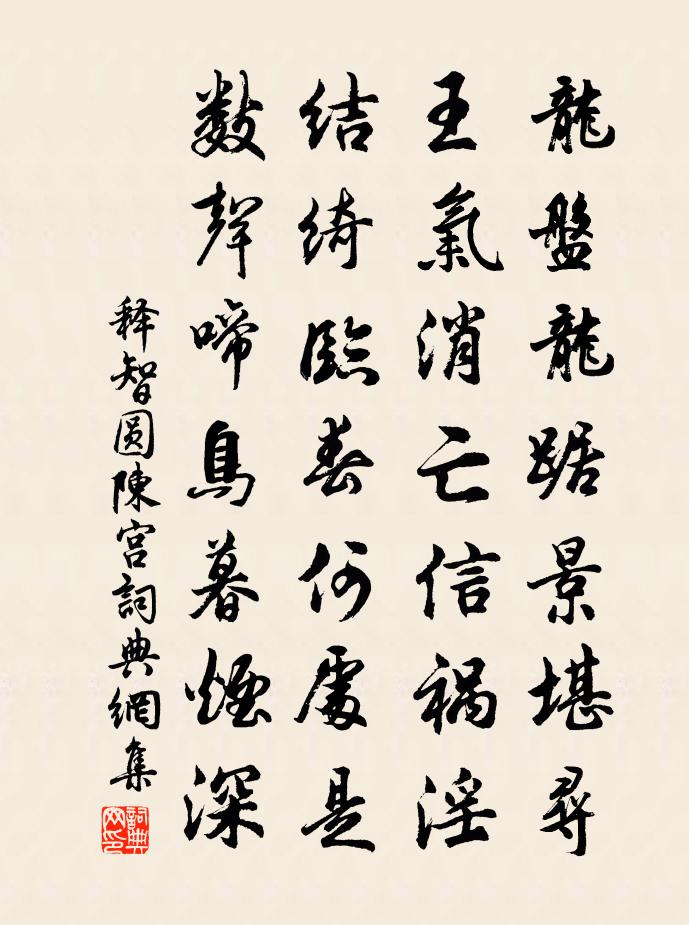 龍盤龍踞景堪尋
王氣消亡信禍淫
结綺臨春何處是
數聲啼鳥暮煙深
释智圆陳宫詞典網集
詞典网印